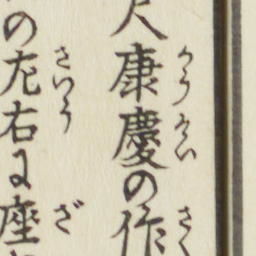 康慶の作
の左右に座